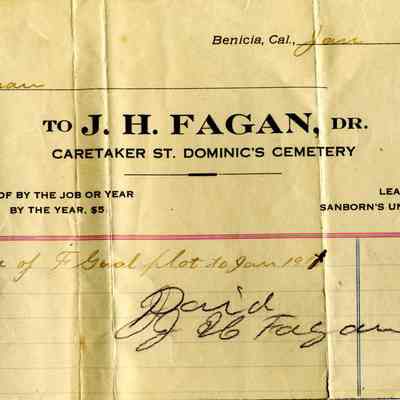 Benicia, Cal., Jan
TO J. H. FAGAN, DR.
CARETAKER ST. DOMINIC'S CEMETERY
OF BY THE JOB OR YEAR
LEA
BY THE YEAR, $5
SANBORN'S UN
of F Gual plot to Jan 191
Paid
J H Fagan